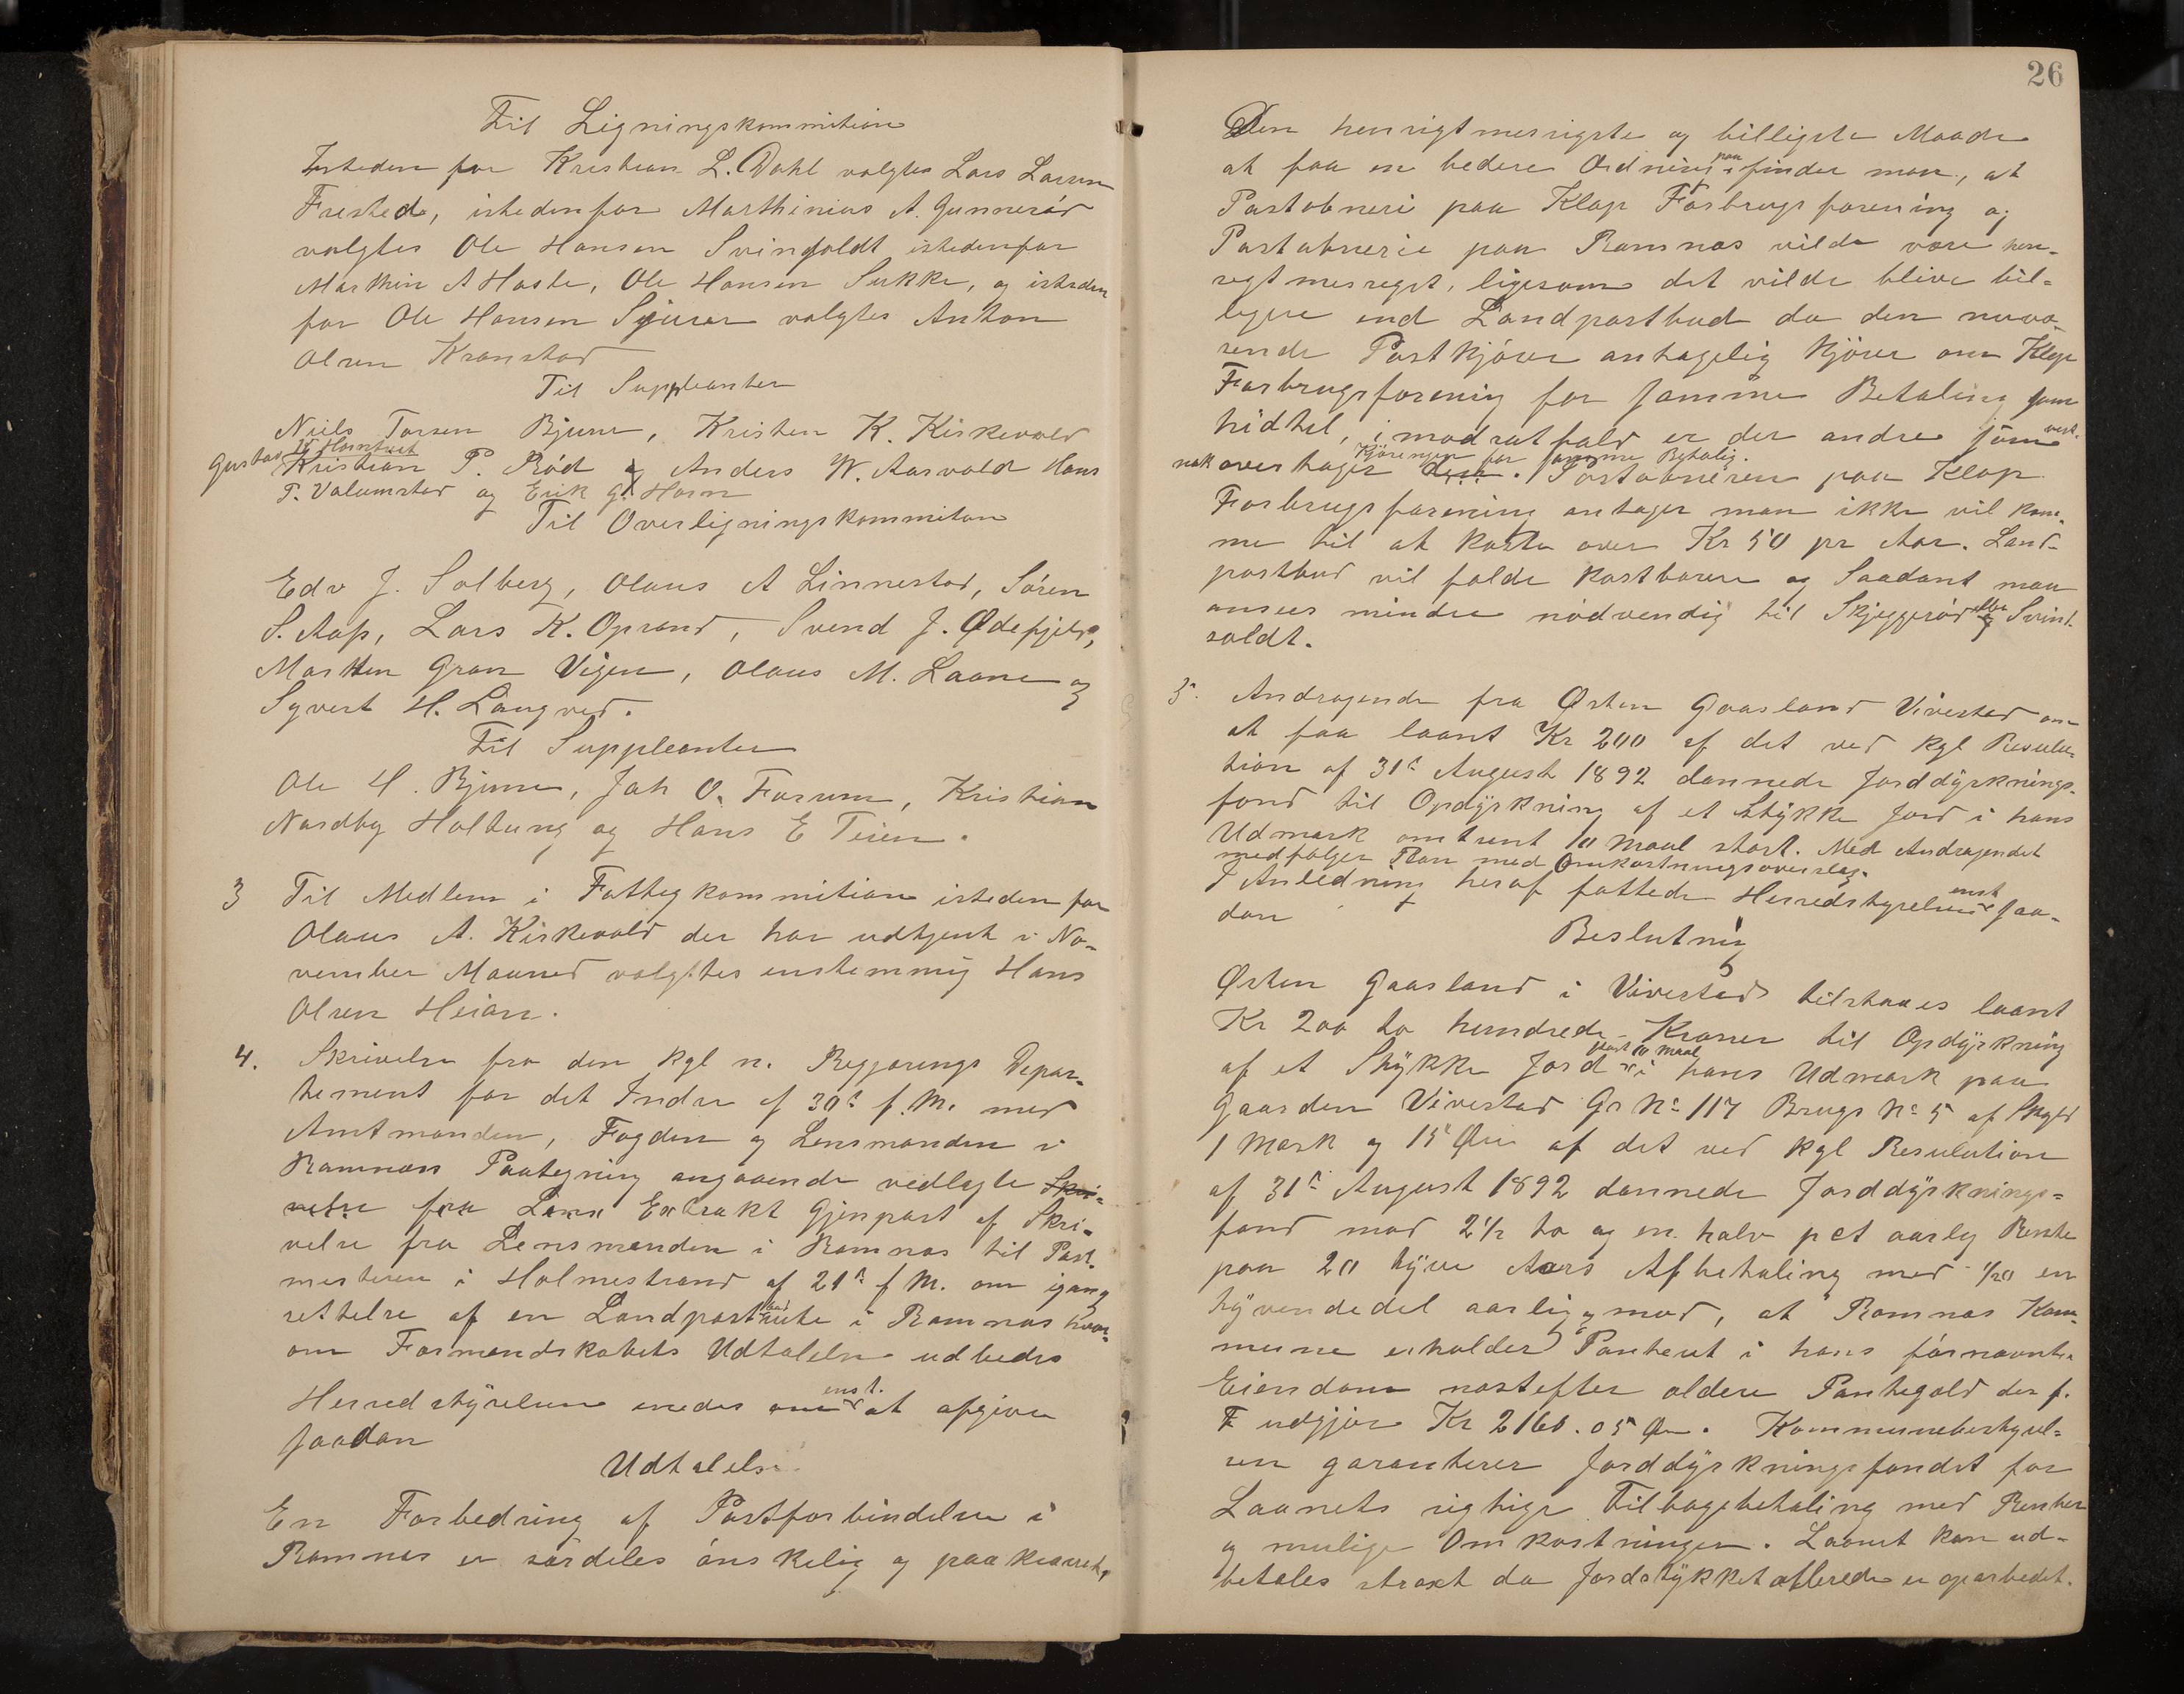 Til Ligningskommition
Isteden for Kristian L. Dahl valgtes Lars Larsen
Frested, istedenfor Marthinius A. Gunnerød
valgtes Ole Hansen Svingsoldt istedenfor
Marthin A Hasle, Ole Hansen Sukke, og isteden
for Ole Hansen valgtes Anton
Olsen Kranstad
Til Suppleanter
Niels Torsen Bjune, Kristen K. Kirkevold
Gustav
Kristian P. Rød og Anders W. Aasvold Hans
T. Valumstad og Erik G. Horn
Til Overligningskommiton
Edv J. Solberg, Olaus A Linnestad, Søren
S. Aas, Lars K. Oprand, Svend J. Ødefjeld,
Marthin Gran Vigen, Olaus M. Laane og
Syvert H. Langved.
Til Suppleanter
Ole H. Bjune, Joh O. Forum, Kristian
Nordby Holtung og Hans E Teien.
3 Til Medlem i Fattigkommition isteden for
Olaus A. Kirkevold der har udtjent i No-
vember Maaned valgtes enstemmig Hans
Olsen Heian.
4. Skrivelse fra den kgl n. Regjerings Depar-
tement for det Indre af 30te f.M. med
Amtmanden, Fogden og Lensmanden i
Ramnæs Paategning angaaende vedlagte Skri-
velse fra Lens Extrakt Gjenpart af Skri-
velse fra Lensmanden i Ramnæs til Post-
mesteren i Holmestrand af 21de f.M. om igang
settelse af en Landpostbud i Ramnæs hvor-
om Formandskabets Udtalelse udbedes
Herredstyrelsen enedes om enst. at afgive
saadan
Udtalelse
En Forbedring af Postforbindelsen i
Ramnæs er særdeles ønskelig og paakrævet,
26
Den hensigtmessigste og billigste Maade
at faa en bedere Ordning paa finder man, at
Postabneri paa Klop Forbrugsforening og
Postabnerie paa Ramnæs vilde være hen-
sigtmessigst, ligesom det vilde blive bil-
ligere end Landpostbud da den nuvæ-
rende Postkjører antagelig kjører om Klop
Forbrugsforening for samme Betaling som
hidtil, i modsatfald er der andre som vist-
nok overtager Kjøringen for samme Betalig. Postabneren paa Klop
Forbrugsforening antager man ikke vil kom-
me til at koste over Kr 50 pr Aar. Land-
postbud vil falde kostbarere og Saadant maa
ansees mindre nødvendig til Skjeggerød eller Svind-
soldt.
5. Andragende fra Østen Gaasland Vivestad om
at faa laant Kr 200 af det ved kgl Resolu-
tion af 31te August 1892 dannede Jorddyrknings-
fond til Opdyrkning af et Stykke Jord i hans
Udmark omtrent 10 Maal stort. Med Andragendet
medfølger Plan med Omkostningsoverslag.
I Anledning heraf fattede Herredstyrelsen enst saa-
dan
Beslutnig
Østen Gaasland i Vivestad tilstaaes laant
Kr 200 to hundrede Kroner til Opdyrkning
af et Stykke Jord stort 10 Maal i hans Udmark paa
Gaarden Vivestad Gr No 117 Brugs No 5 af Skyld
1 Mark og 15 Øre af det ved kgl Resulution
af 31te August 1892 dannede Jorddyrknings-
fond mod 2 1/2 to og en halv pct aarlig Rente
paa 20 tyve Aars Afbetaling med 1/20 en
tyvendedel aarlig og mod, at Ramnæs Kom-
mune erholder Panteret i hans førnævnte
Eiendom næstefter ældere Pantegæld der f.
T udgjør Kr 2160.05 Øre. Kommunebestyrel-
sen garanterer Jorddyrkningsfondet for
Laanets rigtige Tilbagebetaling med Renter
og mulige Omkostninger. Laanet kan ud-
betales straxt da Jordstykket allerede er oparbedet.